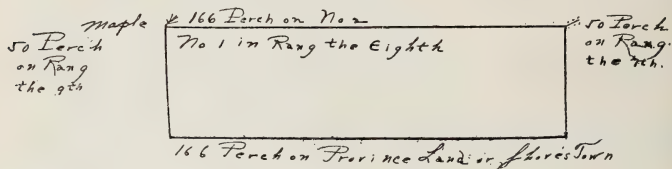 maple
166 Perch on No 2
50 Perch
on Rang
the 9th
No 1 in Rang the Eighth
50 Perch
on Rang.
the 7th.
166 Perch on Province Land or Shores Town